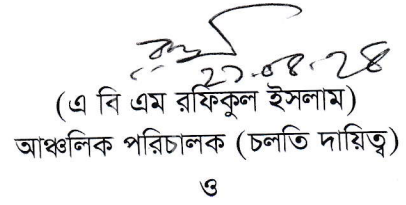 (এ বি এম রফিকুল ইসলাম)
আঞ্চলিক পরিচালক (চলতি দায়িত্ব)
ও